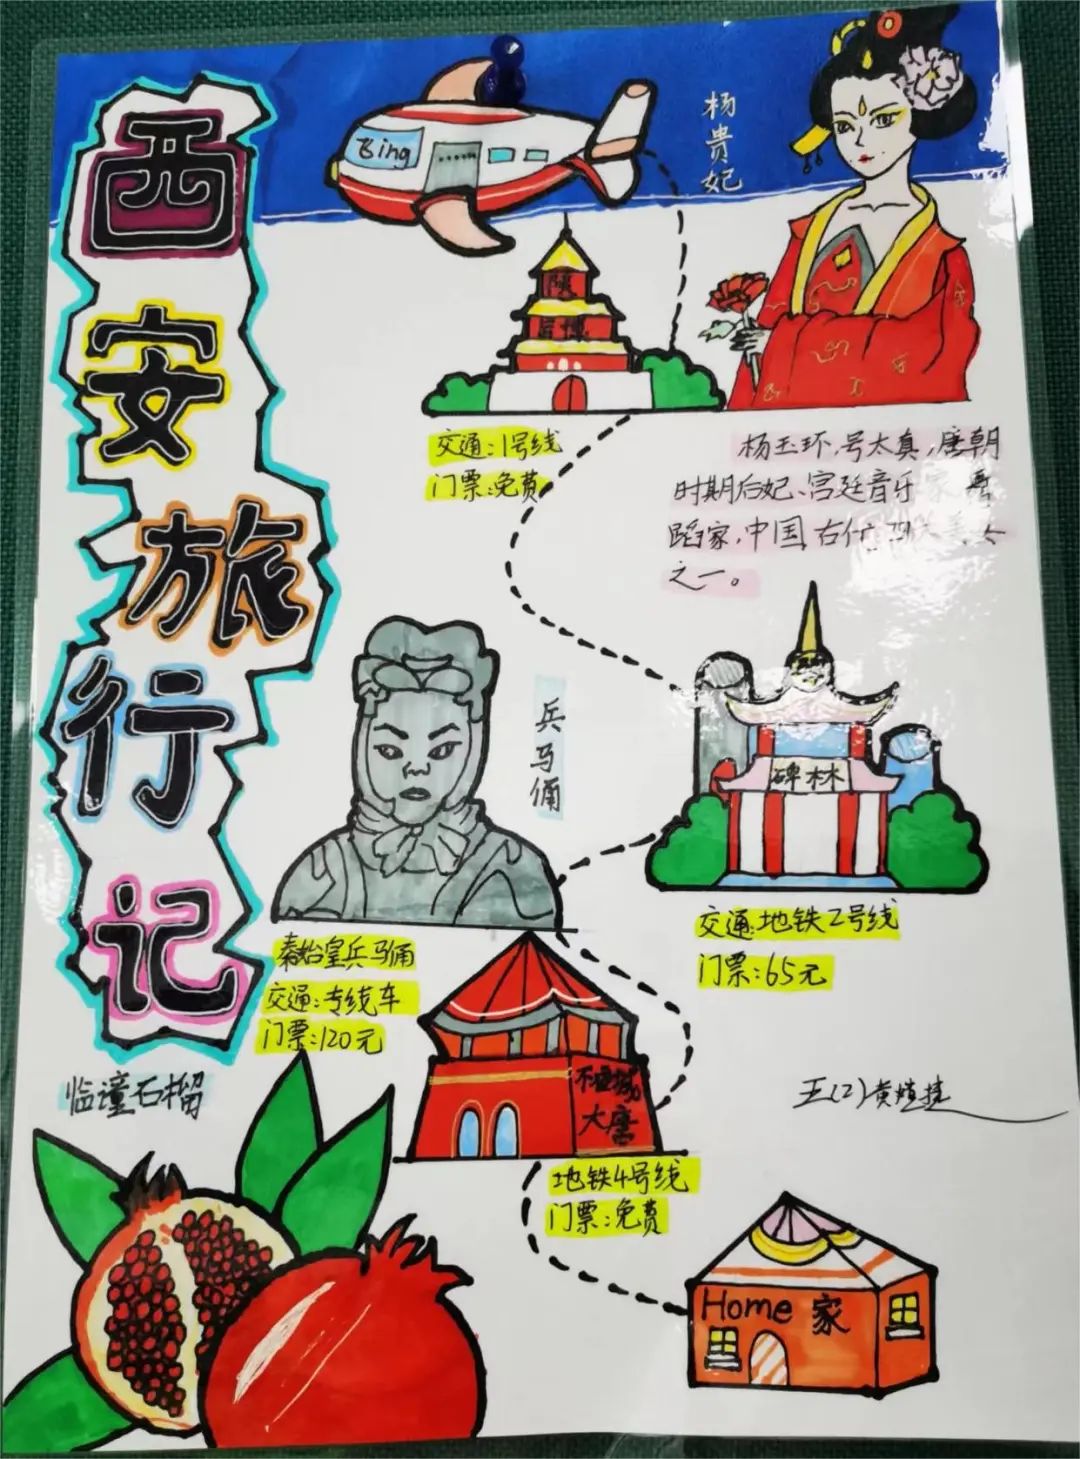 西安旅行记
杨贵妃
陕
历博
交通:1号线
门票:免费
杨玉环,号太真,唐朝
时期后妃、宫廷音乐家
蹈家,中国
之一。
兵马俑
碑林
交通:地铁2号线
门票:65元
秦始皇兵马俑
交通:专线车
门票:120元
不夜城
大唐
地铁4号线
门票:免费
临潼石榴
Home 家